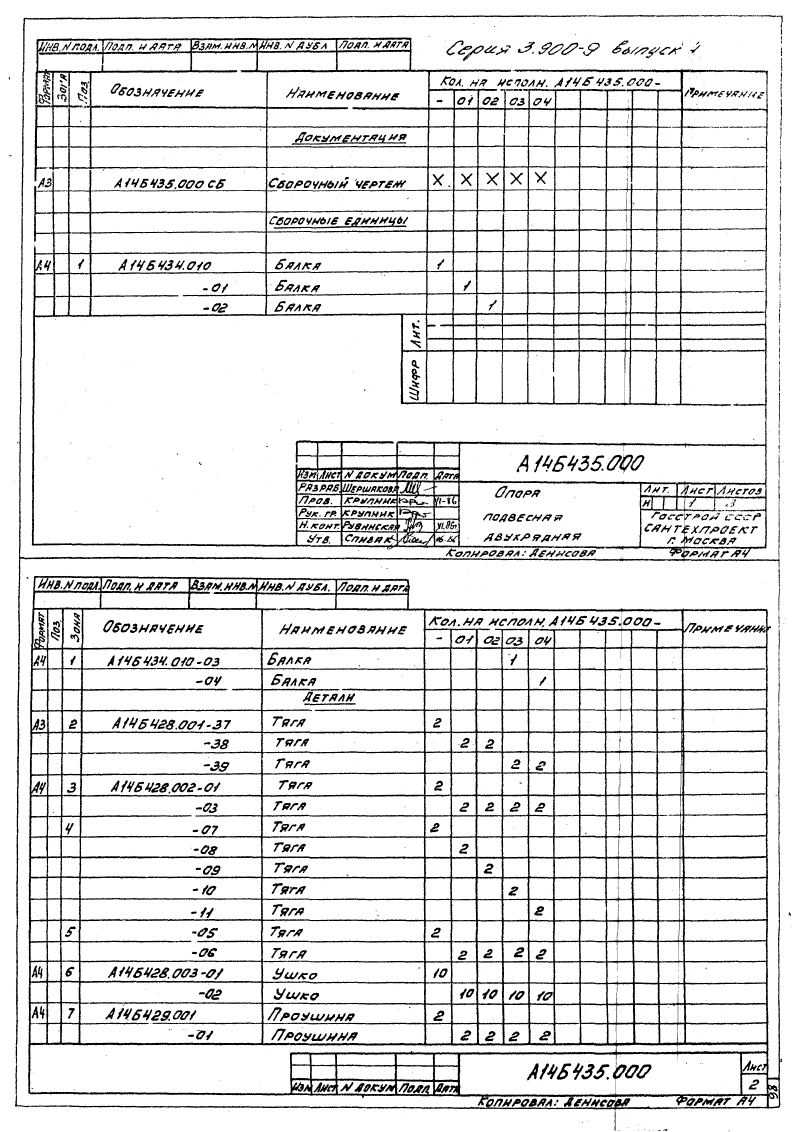 Серия 3.900-9 выпуск 4
Инв. N подл. Подп. и дата Взам. инв. N Инв. N дубл. Подп. и дата
Формат Зона Поз. Обозначение Наименование Кол. на исполн. А14Б435.000- Примечание
- 01 02 03 04
Документация
А3 А14Б435.000 СБ Сборочный чертеж X X X X X
Сборочные единицы
А4 1 А14Б434.010 Балка 1
-01 Балка 1
-02 Балка 1
Лит.
Шифр
А14Б435.000
Изм Лист N докум Подп. Дата
Разраб Шершакова
Пров. Крупник VI-86
Рук. гр. Крупник
Н. конт. Рувинская VI.86
Утв. Спивак
Опора
подвесная
двухрядная
Лит. Лист Листов
И 1 3
Госстрой СССР
Сантехпроект
г. Москва
Копировал: Денисова Формат А4
Инв. N подл. Подп. и дата Взам. инв. N Инв. N дубл. Подп. и дата
Формат Поз Зона Обозначение Наименование Кол. на исполн. А14Б435.000- Примечание
- 01 02 03 04
А4 1 А14Б434.010-03 Балка 1
-04 Балка 1
Детали
А3 2 А14Б428.001-37 Тяга 2
-38 Тяга 2 2
-39 Тяга 2 2
А4 3 А14Б428.002-01 Тяга 2
-03 Тяга 2 2 2 2
4 -07 Тяга 2
-08 Тяга 2
-09 Тяга 2
-10 Тяга 2
-11 Тяга 2
5 -05 Тяга 2
-06 Тяга 2 2 2 2
А4 6 А14Б428.003-01 Ушко 10
-02 Ушко 10 10 10 10
А4 7 А14Б429.001 Проушина 2
-01 Проушина 2 2 2 2
Изм Лист N докум Подп. Дата
А14Б435.000
Лист
2
98
Копировал: Денисова Формат А4